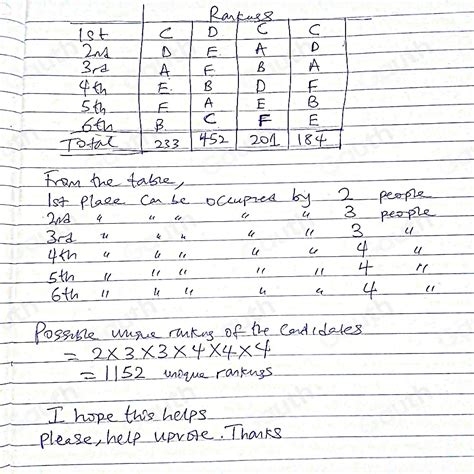 Rankings
1st C D C C
2nd D E A D
3rd A F B A
4th E B D F
5th F A E B
6th B. C F E
Total 233 452 201 184
From the table,
1st place can be occupied by 2 people
2nd " " " " " 3 people
3rd " " " " " 3 "
4th " " " " " 4 "
5th " " " " " 4 "
6th " " " " " 4 "
Possible unique ranking of the candidates
= 2×3×3×4×4×4
= 1152 unique rankings
I hope this helps
please, help upvote. Thanks